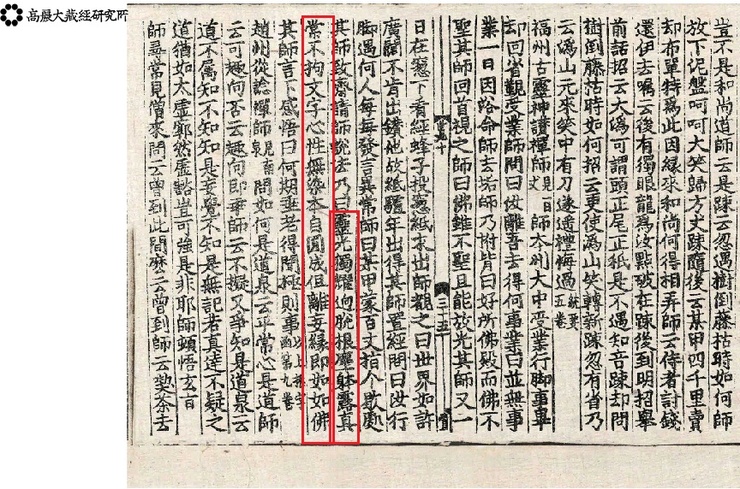 高麗大藏經硏究所
豈不是和尚道師云是踈云忽遇樹倒藤枯時如何師
放下泥盤呵呵大笑歸方丈踈隨後云某甲四千里賣
却布單特爲此因緣來和尚何得相弄師云侍者討錢
還伊去囑云後有獨眼龍爲汝點破在踈後到明招舉
前話招云大潙可謂頭正尾正秖是不遇知音踈却問
樹倒藤枯時如何招云更使潙山笑轉新踈忽有省乃
云潙山元來笑中有刀遂遥禮悔過
福州古靈神讚禪師師本州大中受業行脚事畢
却回省觀受業師問曰汝離吾去得何事業曰並無事
業一日因浴命師去垢師乃拊背曰好所佛殿而佛不
聖其師回首視之師曰佛雖不聖且能放光其師又一
日在窓下看經蜂子投窓紙求出師觀之曰世界如許
廣闊不肯出鑽他故紙驢年出得其師置經問曰汝行
脚遇何人每每發言異常師曰某甲蒙百丈指个歇處
其師致齋請師說法乃曰靈光獨耀迥脫根塵躰露真
常不拘文字心性無染本自圓成但離妄緣即如如佛
其師言下感悟曰何期垂老得聞極則事
趙州從諗禪師見南泉問如何是道泉云平常心是道師
云可趣向否云趣向即乖師云不擬又爭知是道泉云
道不屬知不知知是妄覺不知是無記若真達不疑之
道猶如太虛廓然虛豁豈可強是非耶師頓悟玄旨
師尋常見僧來問云曾到此間麽云曾到師云喫茶去
三十五